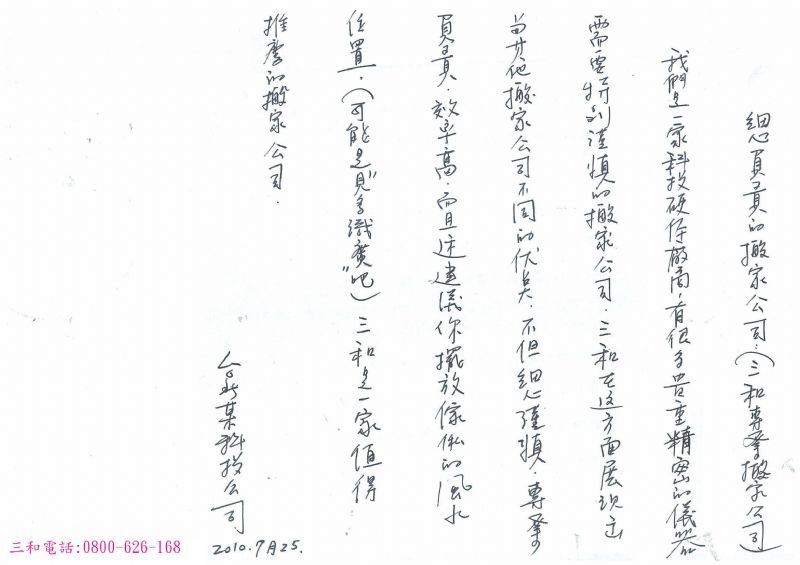 細心負責的搬家公司.(三和專業搬家公司)
我們是一家科技硬体廠商,有很多貴重精密的儀器
需要特別謹慎的搬家公司.三和在這方面展現出
與其他搬家公司不同的优点.不但細心謹慎.專業
負責.效率高.而且还建議你擺放傢俬的風水
位置.(可能是"見多識廣"吧)三和是一家值得
推薦的搬家公司.
台北某科技公司
2010.7月25.
三和電話:0800-626-168